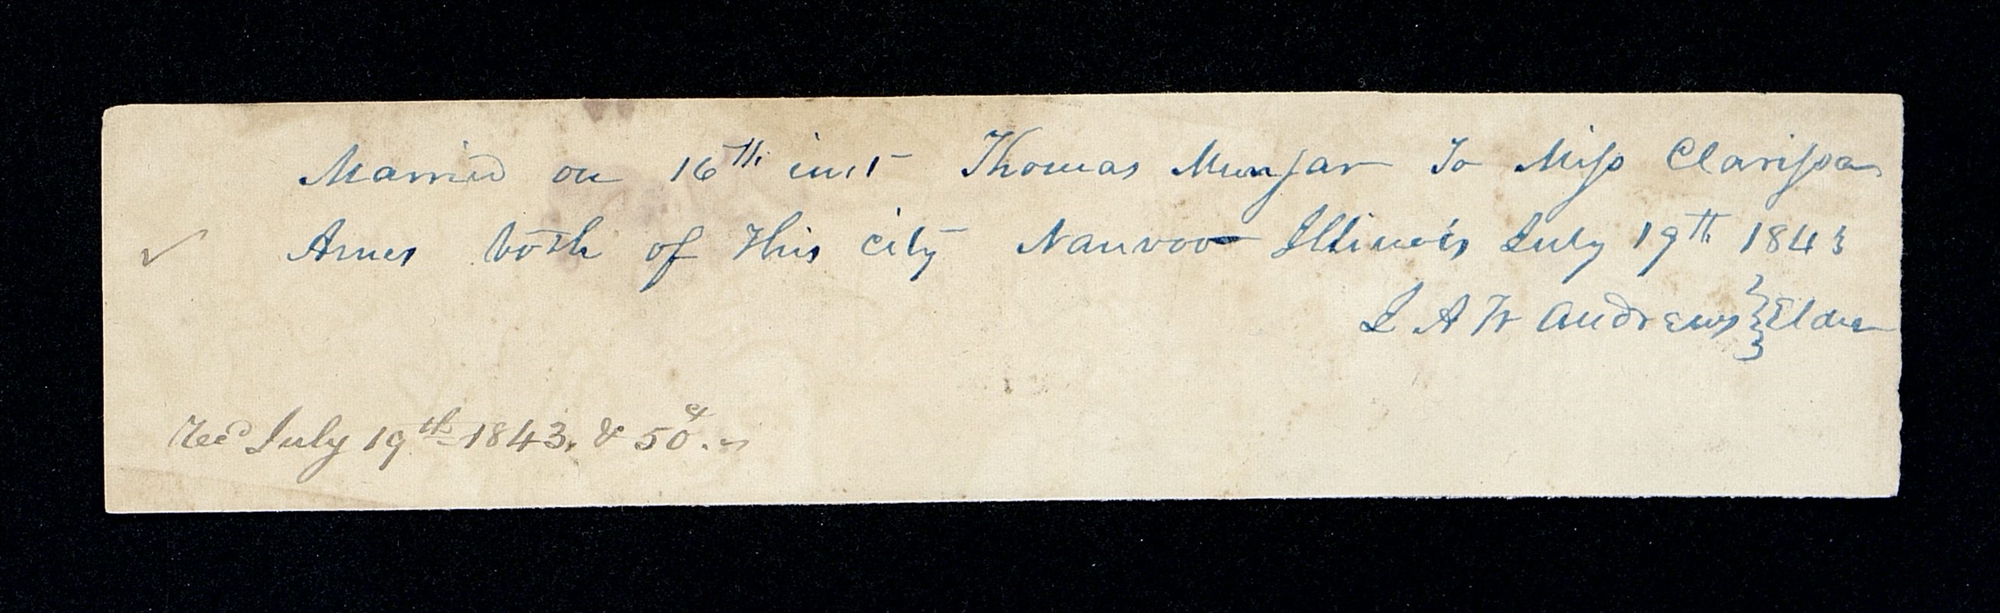 Married on 16th inst Thomas Munjar To Miss Clarissa
✓ Ames both of this city Nauvoo Illinois July 19th 1843
L A W Andrews } Elder
Recd July 19th 1843. & 50cts.